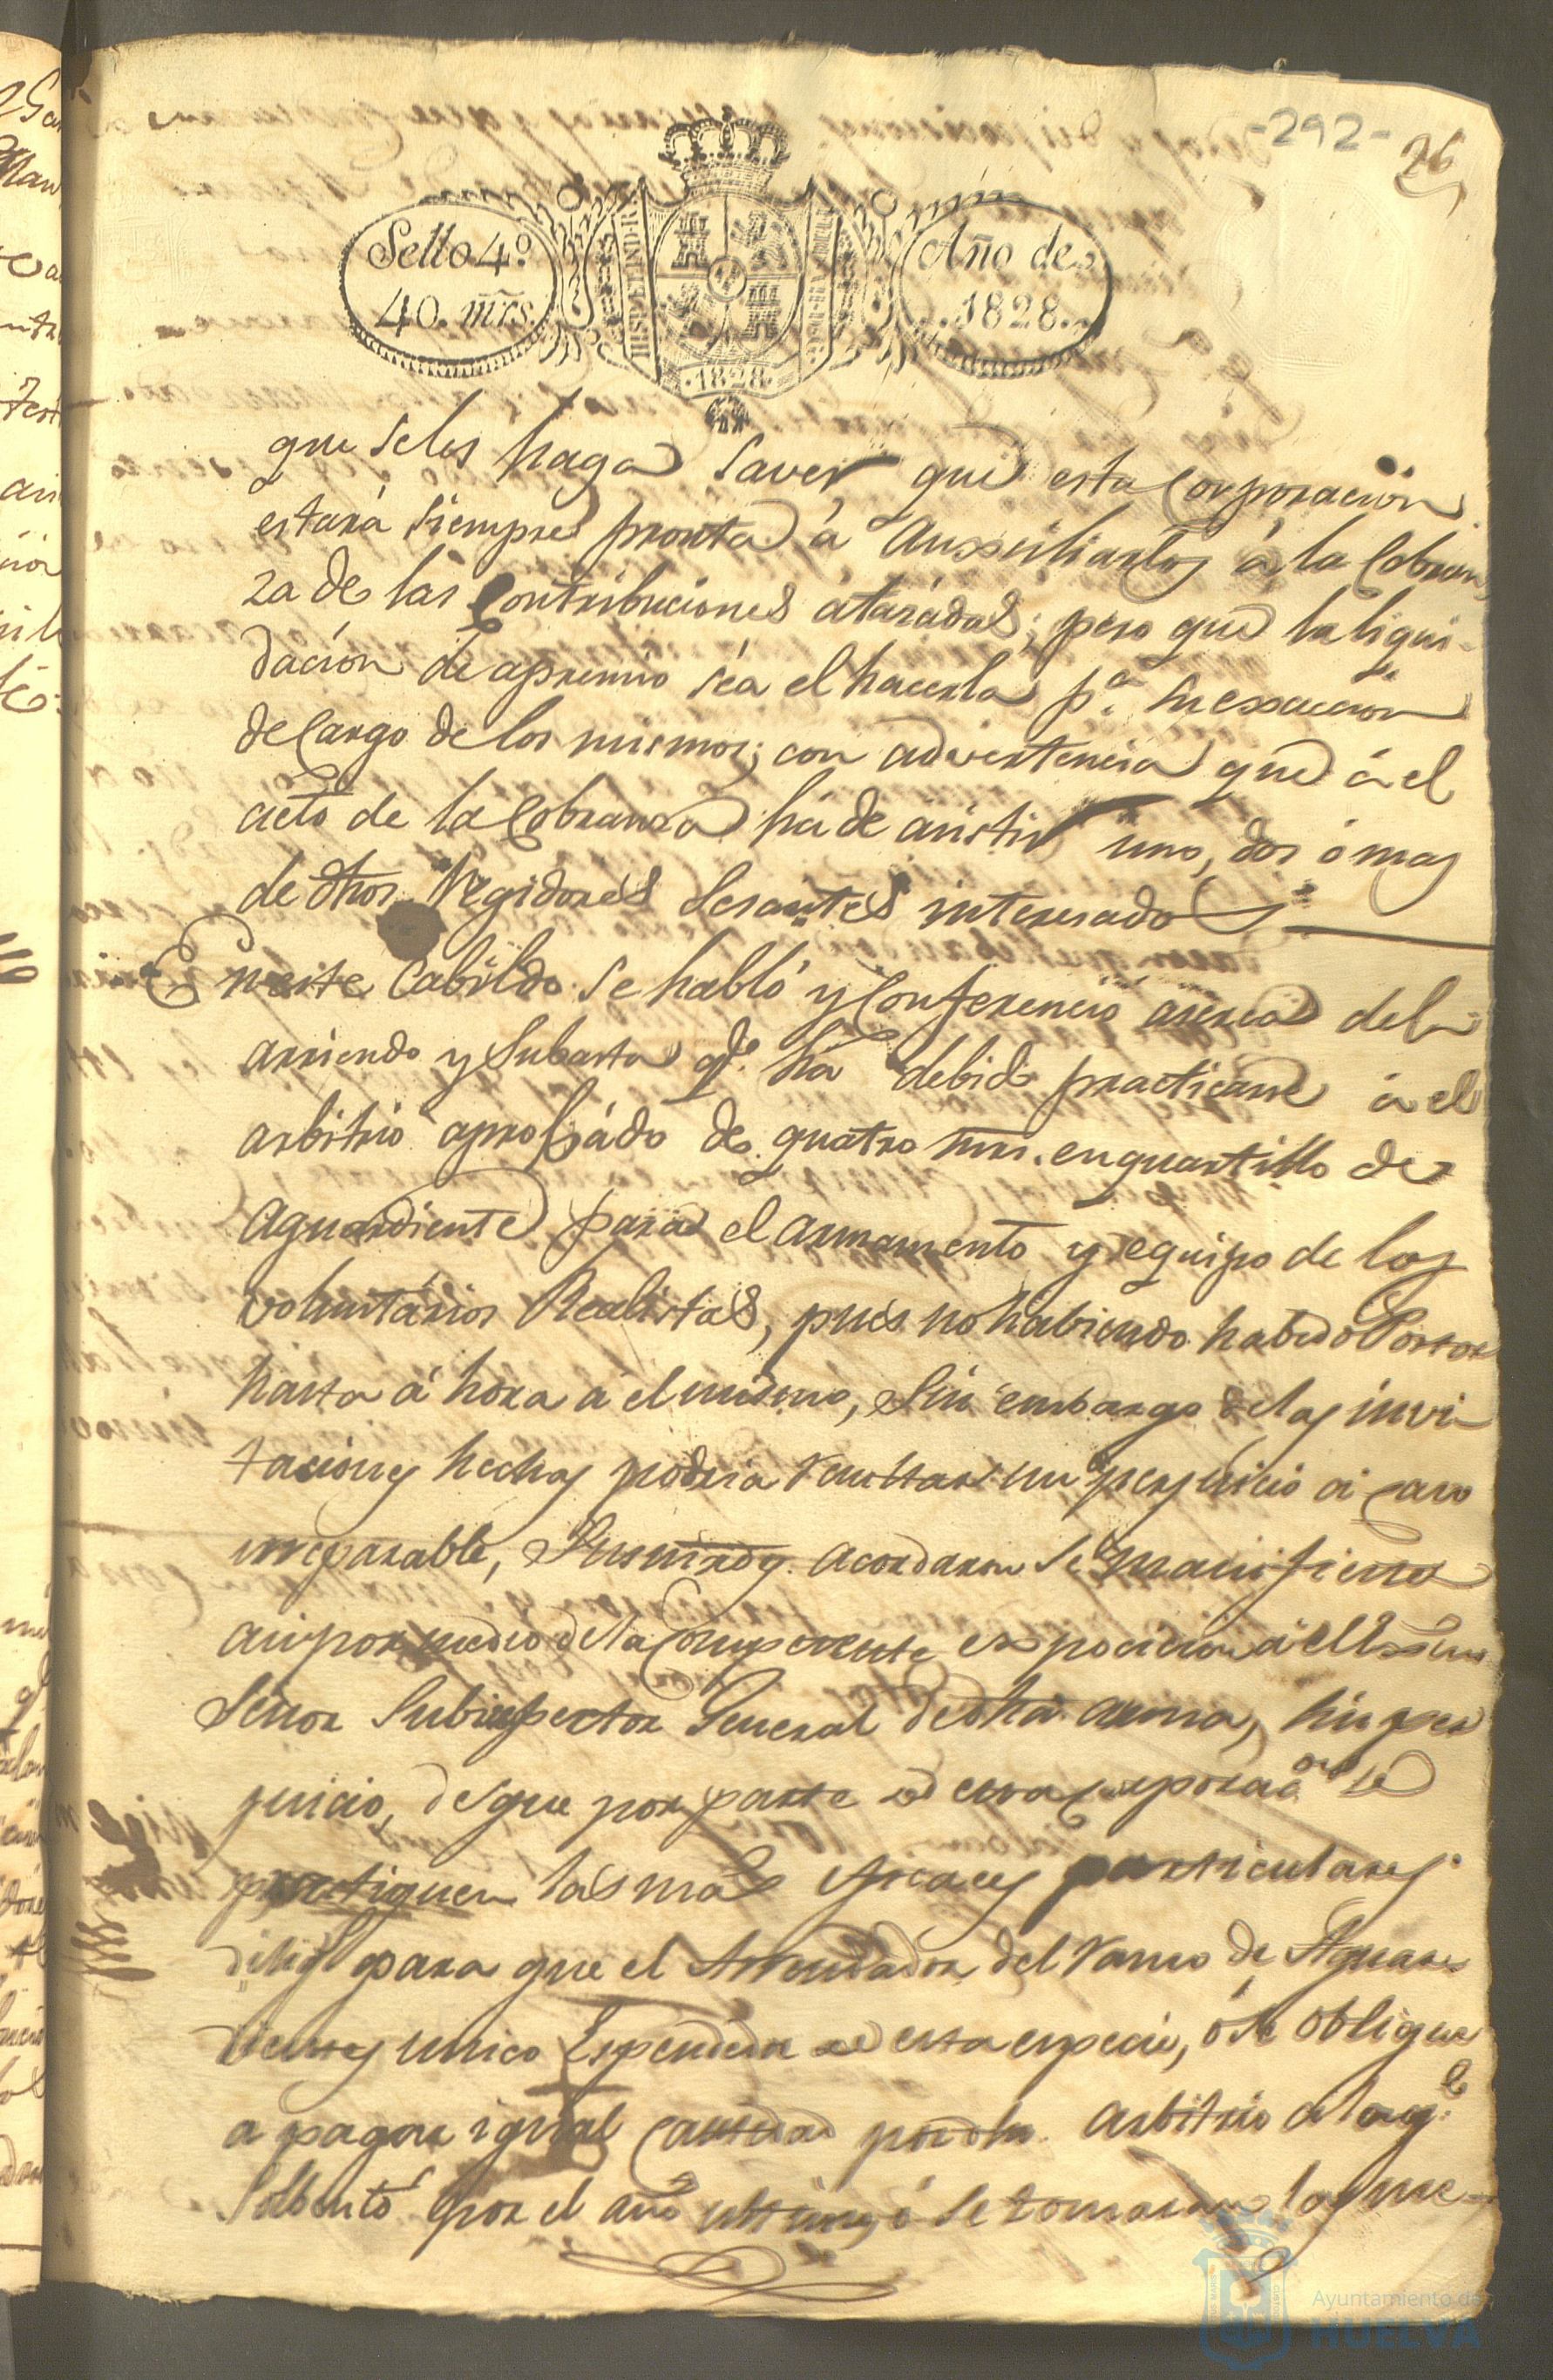 -292-
26
Sello 4º
40. mrs.
HISP. ET IND. R.
Año de
.1828.
.1828.
que seles haga saver que esta Corporacion
estará siempre pronta á Auxsiliarlos á la Cobran
za de las Contribuciones átrasadas; pero que la liqui-
dacion de apremio séa el hacerla pª. su exsaccion
de Cargo de los mismos; con advertencia que á el
acto de la Cobranza há de asistir uno, dos ó mas
de dhos. Regidores Sesantes interesados
En este Cabildo se habló y Conferenció aserca del
arriendo y Subasta qe. há debido practicarse á el
arbitrio aprobádo de quatro mrs. en quartillo de
Aguardiente para el armamento y equipo de los
voluntários Realistas, pues no habiendo habido Postor
hasta á hora á el mismo, sin embargo de las invi-
taciones hechas podria resultar un perjuicio si caso
irreparable, acordaron se manifieste
asi por medio de la Competente exposicion á el
Señor Subinspector General de dha. arma, sin per
juicio, de que por parte de esta Corporacon. se
practiquen las mas eficaces particulares
diligs para que el Arrendador del ramo de Aguar-
dientes unico Espendedor de esta especie, ó se obligue
a pagar igual Cantidad por dho. arbitrio a la qe.
Solventó por el año ultimo, ó se tomaran las me-
Ayuntamiento de
HUELVA